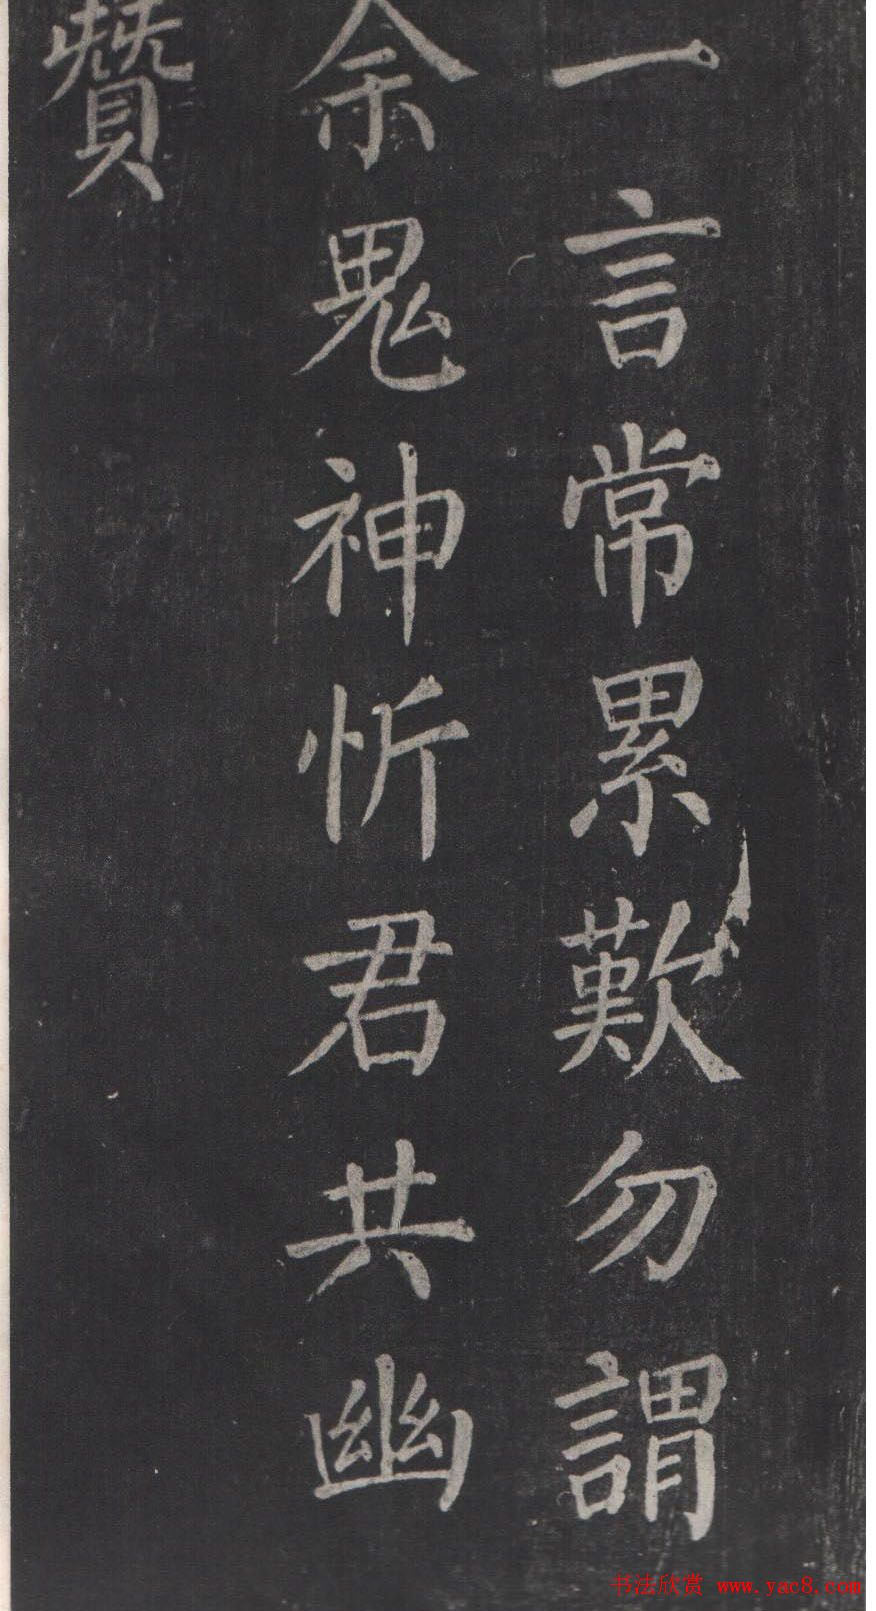 一言常累歎勿謂
余鬼神忻君共幽
贊
书法欣赏 www.yac8.com